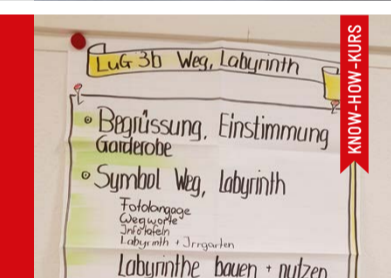 LuG 3b Weg, Labyrinth
Begrüssung, Einstimmung
Garderobe
Symbol Weg, Labyrinth
Fotolangage
Wegworte
Infotafeln
Labyrinth + Irrgarten
Labyrinthe bauen + nutzen
KNOW-HOW-KURS